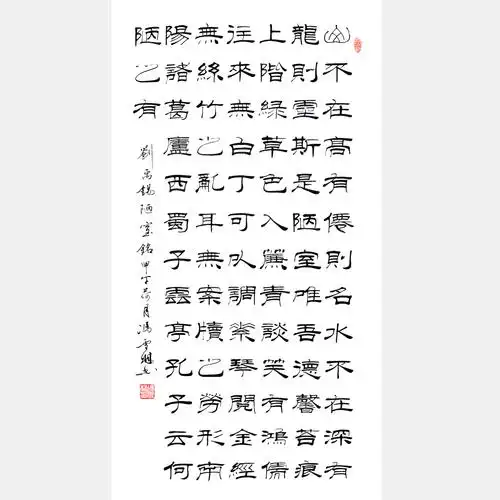 山不在高有僊則名水不在深有
龍則靈斯是陋室唯吾德馨苔痕
上階綠草色入簾青談笑有鴻儒
往來無白丁可以調素琴閱金經
無絲竹之亂耳無案牘之勞形南
陽諸葛廬西蜀子雲亭孔子云何
陋之有
劉禹錫陋室銘甲午荷月馮